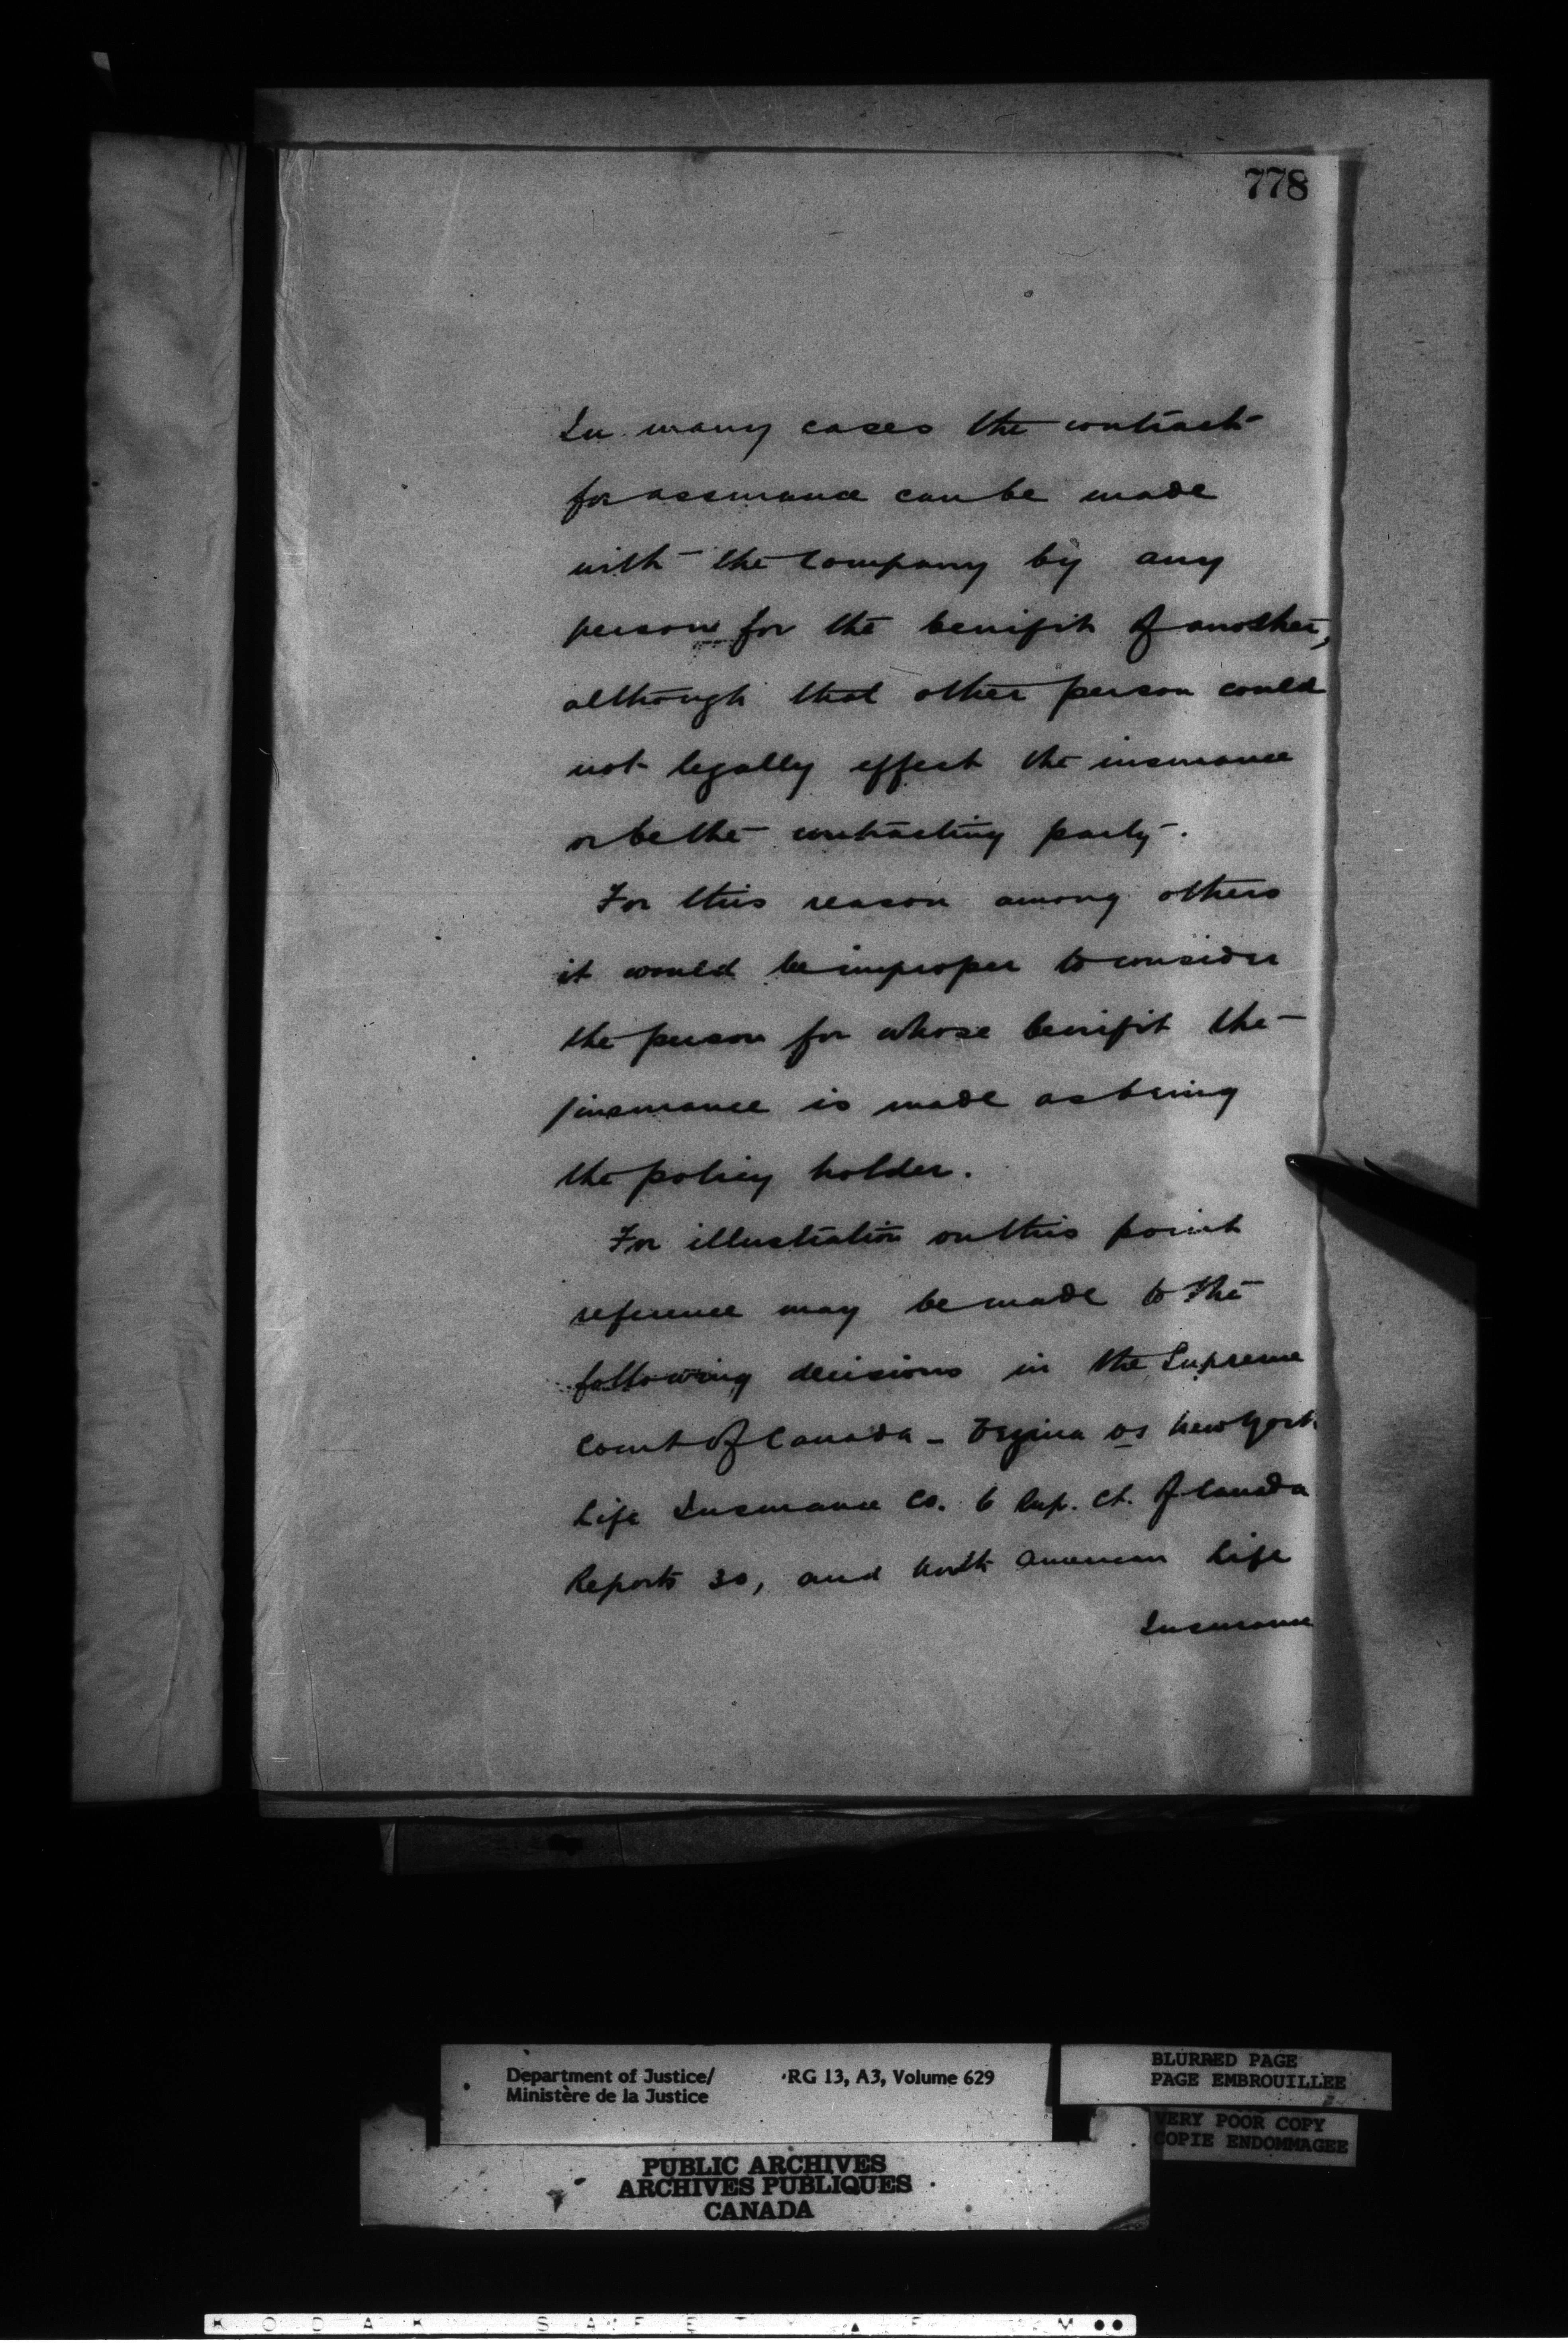 778
In many cases the contract
for assurance can be made
with the Company by any
person for the benifit of another,
although that other person could
not legally effect the insurance
or be the contracting party.
For this reason among others
it would be improper to consider
the person for whose benifit the
insurance is made as being
the policy holder.
For illustration on this point
reference may be made to the
following decisions in the Supreme
Court of Canada - vs New York
Life Insurance Co. 6 Sup. Ct. of Canada
Reports 30, and North American Life
Insurance
Department of Justice/
Ministère de la Justice
RG 13, A3, Volume 629
BLURRED PAGE
PAGE EMBROUILLEE
VERY POOR COPY
COPIE ENDOMMAGEE
PUBLIC ARCHIVES
ARCHIVES PUBLIQUES
CANADA